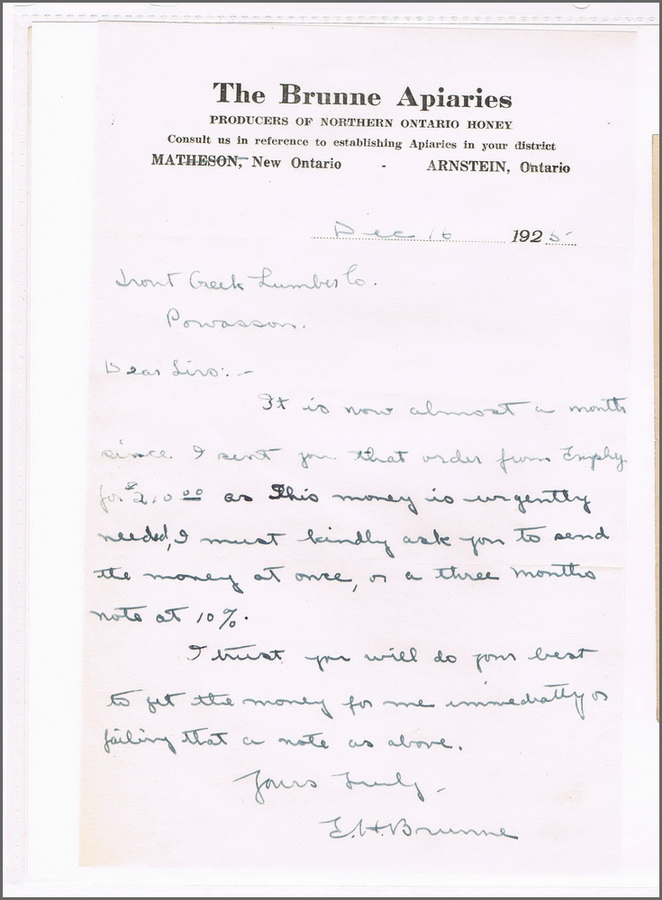 The Brunne Apiaries
PRODUCERS OF NORTHERN ONTARIO HONEY
Consult us in reference to establishing Apiaries in your district
MATHESON, New Ontario - ARNSTEIN, Ontario
Dec 16 1925
Trout Creek Lumber Co.
Powasson.
Dear Sirs:-
It is now almost a month
since I sent you that order from
for $210 00 as this money is urgently
needed, I must kindly ask you to send
the money at once, or a three months
note at 10%.
I trust you will do your best
to get the money for me immediatly or
failing that a note as above.
Yours Truly,
E.H. Brunne